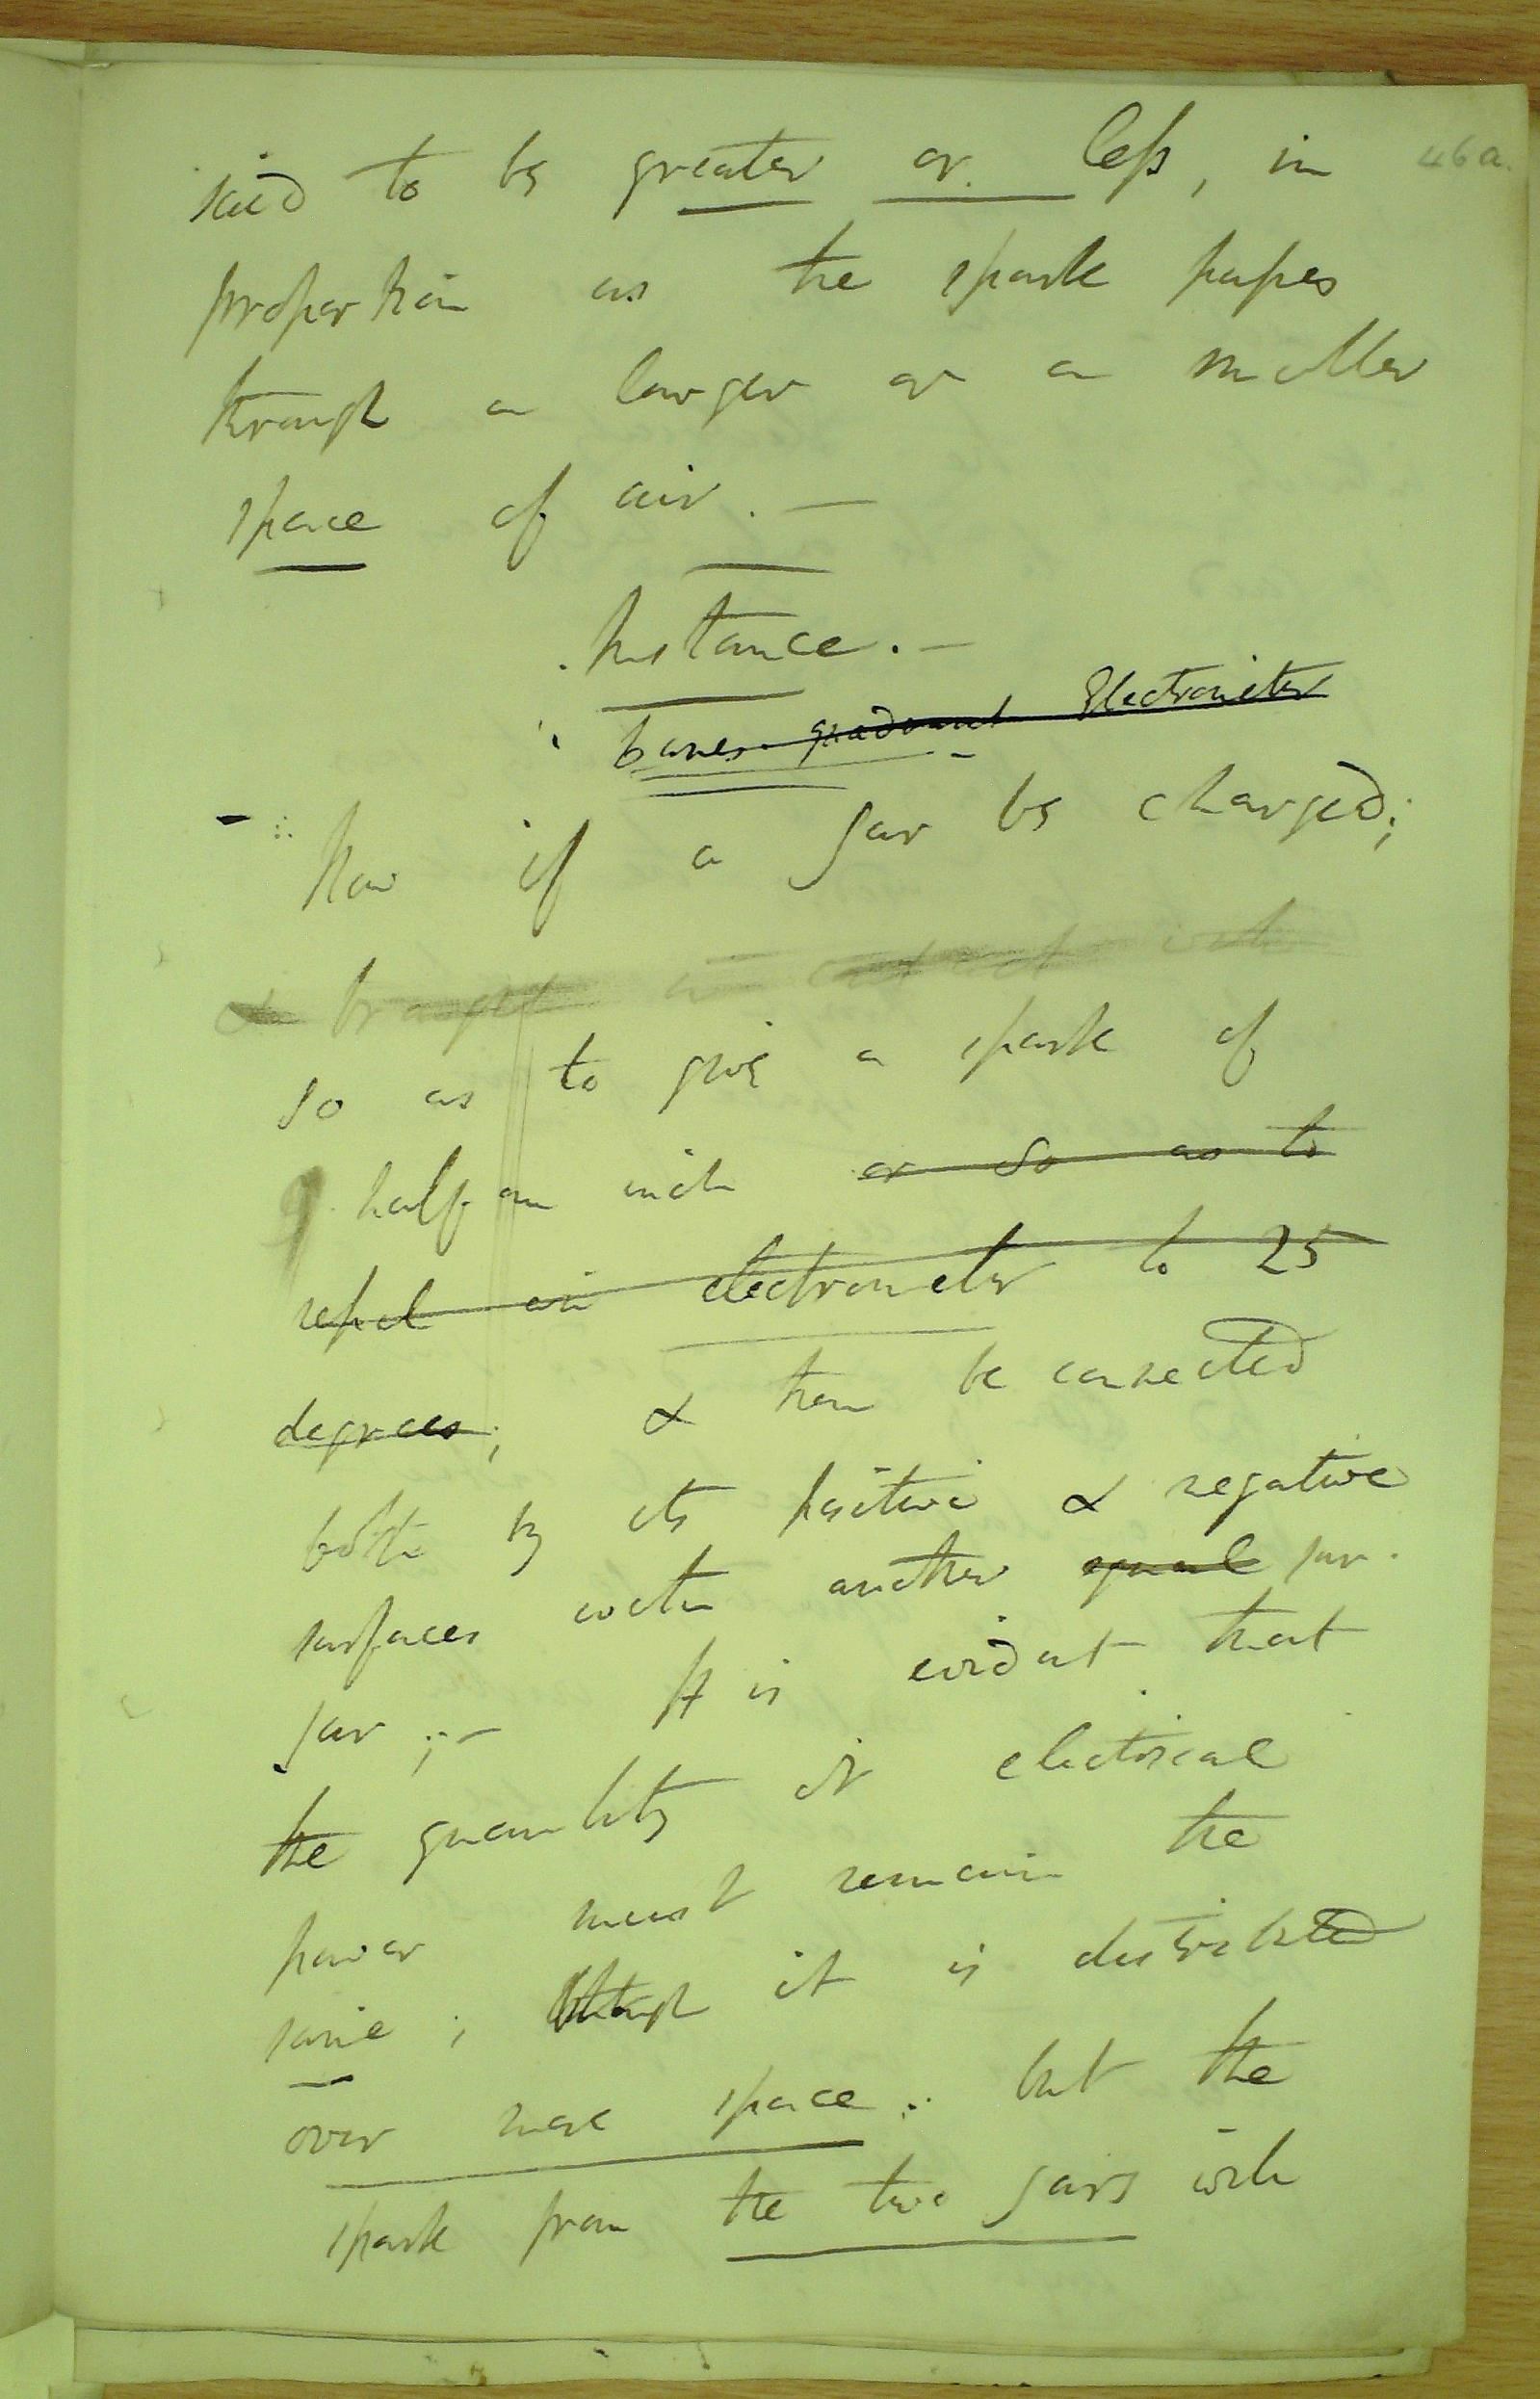 46a.
said to be greater or less, in
proportion as the spark passes
through a larger or a smaller
space of air. —
Instance. —
Lanes. quadrant Electrometer
Now if a Jar be charged;
& brought in contact with
so as to give a spark of
half an inch or so as to
repel an electrometer to 25
degrees; & then be connected
both by its positive & negative
surfaces with another equal jar.
jar ; — It is evident that
the quantity of electrical
power must remain the
same ; though it is distributed
over more space. but the
spark from the two jars will